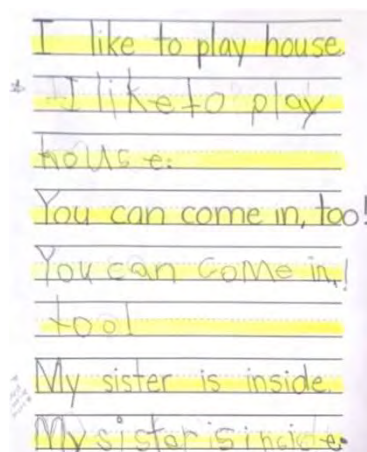 I like to play house.
I like to play
house.
You can come in, too!
You can come in,!
too!
My sister is inside.
My sister is incide.